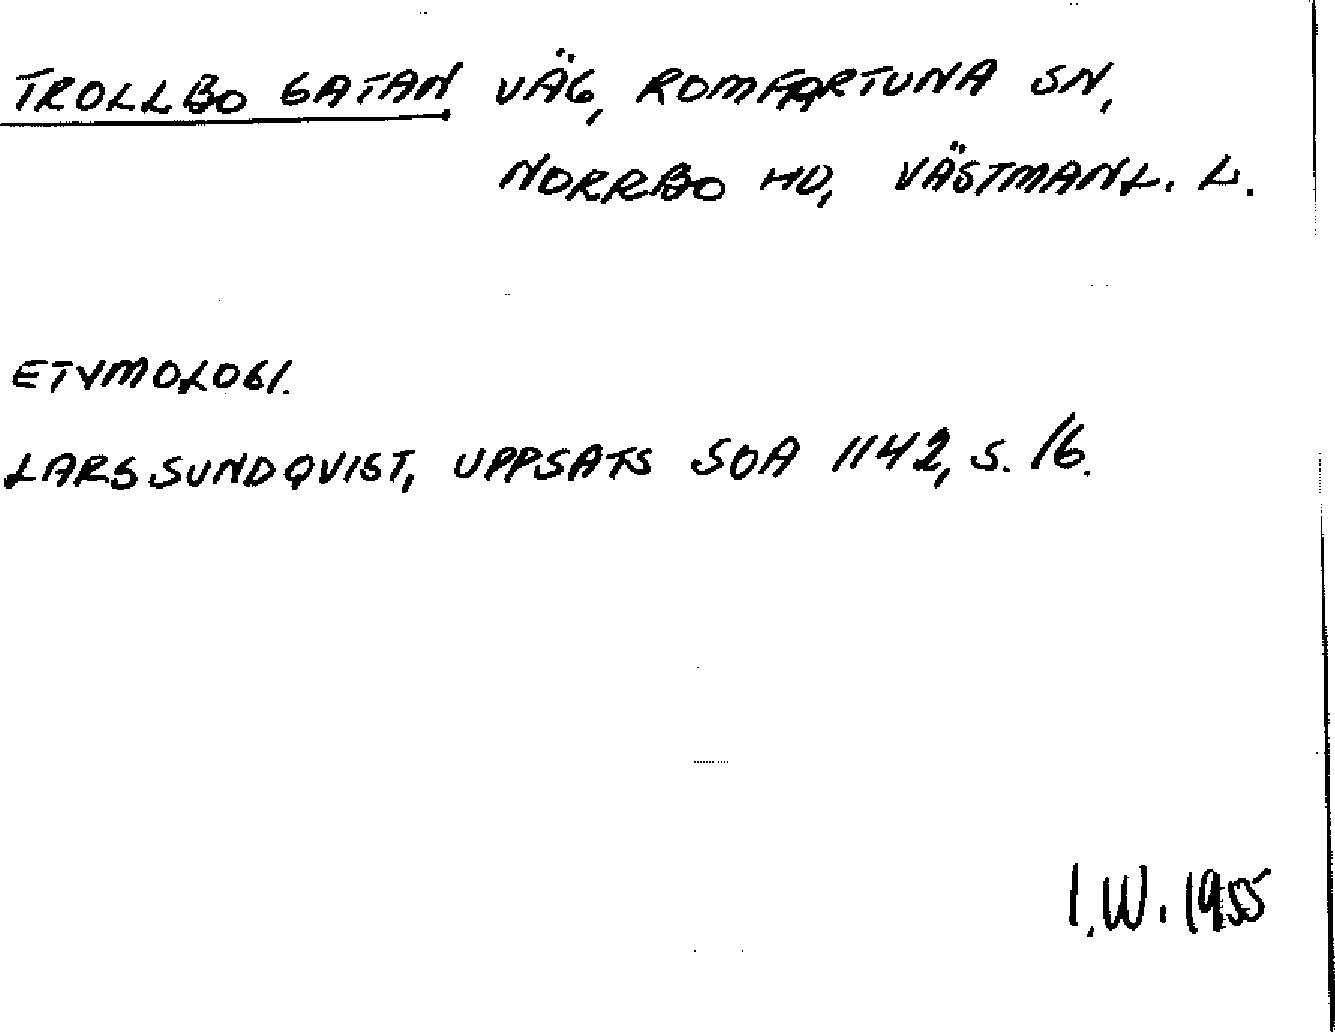 TROLLBO GATAN VÄG, ROMFARTUNA SN,
NORRBO HD, VÄSTMANL. L.
ETYMOLOGI.
LARS SUNDQVIST, UPPSATS SOA 1142, S. 16.
I.W. 1955